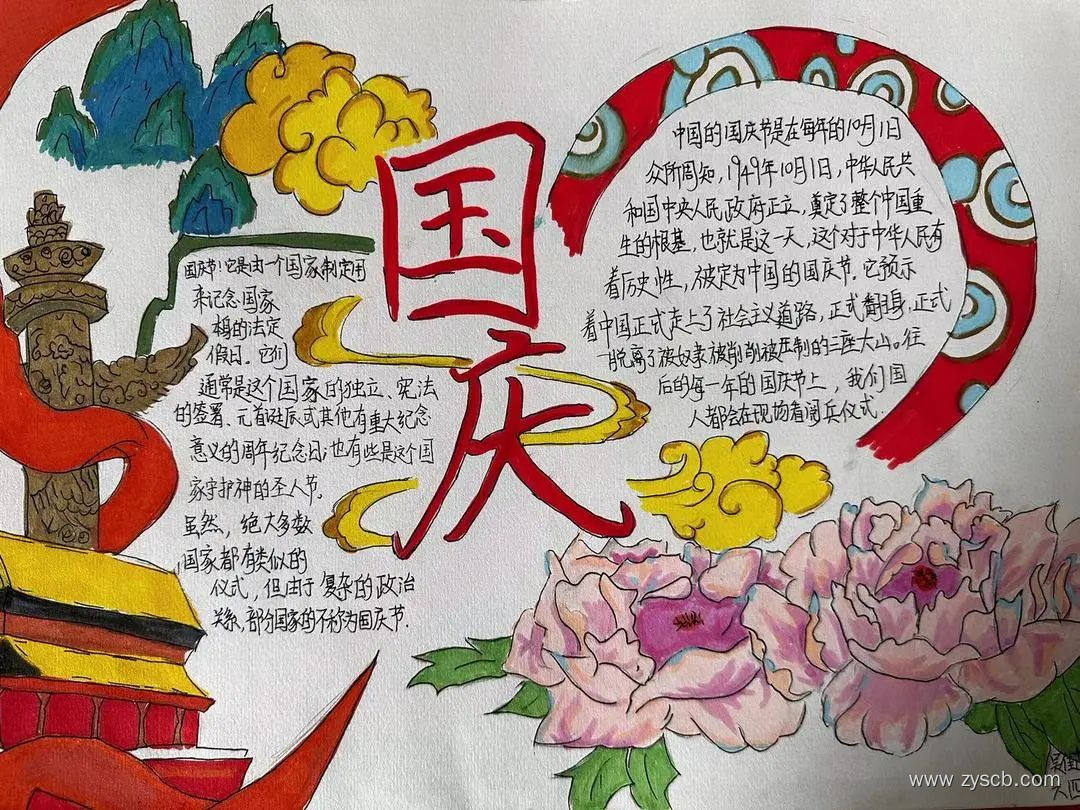 国庆
国庆节!它是由一个国家制定用
来记念国家
模的法定
假日。它们
通常是这个国家的独立、宪法
的签署、元首诞辰或其他有重大纪念
意义的周年纪念日;也有些是这个国
家守护神的圣人节。
虽然,绝大多数
国家都有类似的
仪式,但由于复杂的政治
关系,部分国家的不称为国庆节.
中国的国庆节是在每年的10月1日
众所周知,1949年10月1日,中华人民共
和国中央人民政府正立,奠定了整个中国重
生的根基,也就是这一天,这个对于中华人民有
着历史性,被定为中国的国庆节.它预示
着中国正式走上了社会主义道路,正式翻身,正式
脱离了被奴隶被削削被压制的三座大山。往
后的每一年的国庆节上,我们国
人都会在现场看阅兵仪式.
www.zyscb.com